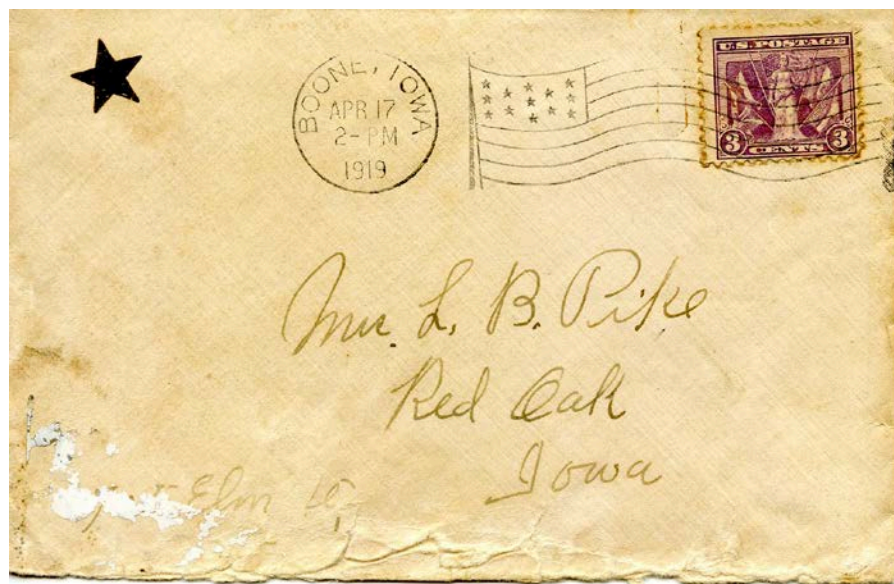 BOONE, IOWA
APR 17
2-PM
1919
U.S. POSTAGE
3 CENTS 3
Mrs. L. B. Pike
Red Oak
Iowa
Elm